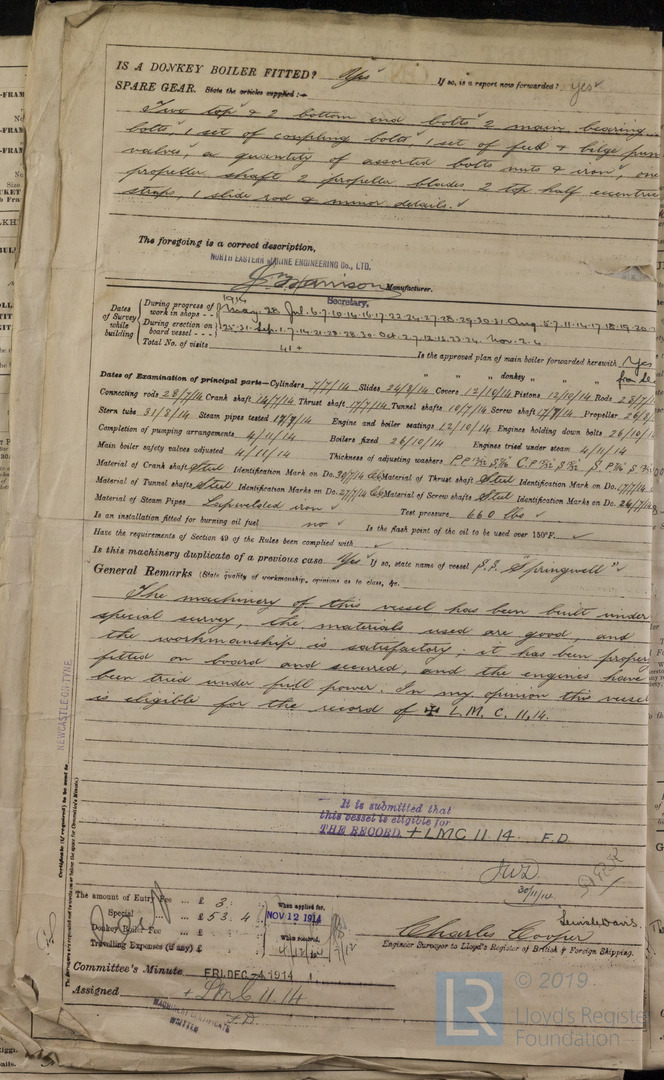 IS A DONKEY BOILER FITTED? Yes If so, is a report now forwarded? Yes
SPARE GEAR. State the articles supplied:—
Two top & 2 bottom end bolts 2 main bearing
bolts, 1 set of coupling bolts, 1 set of feed & bilge pump
valves, a quantity of assorted bolts nuts & iron, one
propeller shaft 2 propeller blades 2 top half eccentric
straps, 1 slide rod & minor details.
The foregoing is a correct description,
NORTH EASTERN MARINE ENGINEERING Co., LTD.
Harrison Manufacturer.
Secretary,
1914
Dates of Survey while building
During progress of work in shops - - May. 28 Jul. 6. 7. 10. 14. 16. 17. 22. 24. 27. 28. 29. 30. 31. Aug. 5. 7. 11. 14. 17. 18. 19. 20.
During erection on board vessel - - - 25. 31. Sep. 1. 7. 14. 21. 28. 30. Oct. 2. 7. 12. 15. 23. 24. Nov. 2. 4.
Total No. of visits 41 Is the approved plan of main boiler forwarded herewith Yes
" " " donkey " " "
Dates of Examination of principal parts—Cylinders 7/7/14 Slides 24/8/14 Covers 12/10/14 Pistons 12/10/14 Rods
Connecting rods 28/7/14 Crank shaft 14/7/14 Thrust shaft 17/7/14 Tunnel shafts 10/7/14 Screw shaft 17/7/14 Propeller
Stern tube 31/8/14 Steam pipes tested 17/9/14 Engine and boiler seatings 12/10/14 Engines holding down bolts 26/10/14
Completion of pumping arrangements 4/11/14 Boilers fixed 26/10/14 Engines tried under steam 4/11/14
Main boiler safety valves adjusted 4/11/14 Thickness of adjusting washers
Material of Crank shaft Steel Identification Mark on Do. Material of Thrust shaft Steel Identification Mark on Do. 17/7/14
Material of Tunnel shafts Steel Identification Marks on Do. 27/7/14 Material of Screw shafts Steel Identification Marks on Do. 24/7/14
Material of Steam Pipes Lapwelded iron Test pressure 660 lbs
Is an installation fitted for burning oil fuel no Is the flash point of the oil to be used over 150°F.
Have the requirements of Section 49 of the Rules been complied with
Is this machinery duplicate of a previous case Yes If so, state name of vessel S.S. "Springwell"
General Remarks (State quality of workmanship, opinions as to class, &c.
The machinery of this vessel has been built under
special survey, the materials used are good, and
the workmanship is satisfactory; it has been proper
fitted on board and secured, and the engines have
been tried under full power. In my opinion this vessel
is eligible for the record of ✠ L.M.C. 11.14.
NEWCASTLE-ON-TYNE
It is submitted that
this vessel is eligible for
THE RECORD. + LMC 11.14 F.D
JWD
30/11/14
The amount of Entry Fee ... £ 3
Special ... £ 53. 4
Donkey Boiler Fee ... £
Travelling Expenses (if any) £
When applied for,
NOV 12 1914
When received,
4/12/14
Charles Cooper
Engineer Surveyor to Lloyd's Register of British & Foreign Shipping.
Committee's Minute FRI. DEC -4 1914
Assigned + LMC 11.14
F.D.
MACHINERY CERTIFICATE
WRITTEN
LR
© 2019
Lloyd's Register
Foundation